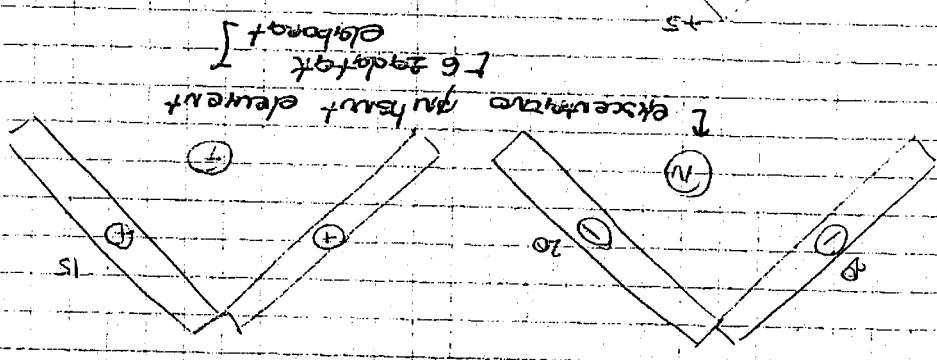 20 20 15
− − + +
N T
ekscentrično pritisnut element
[6 zadatak
elaborat]